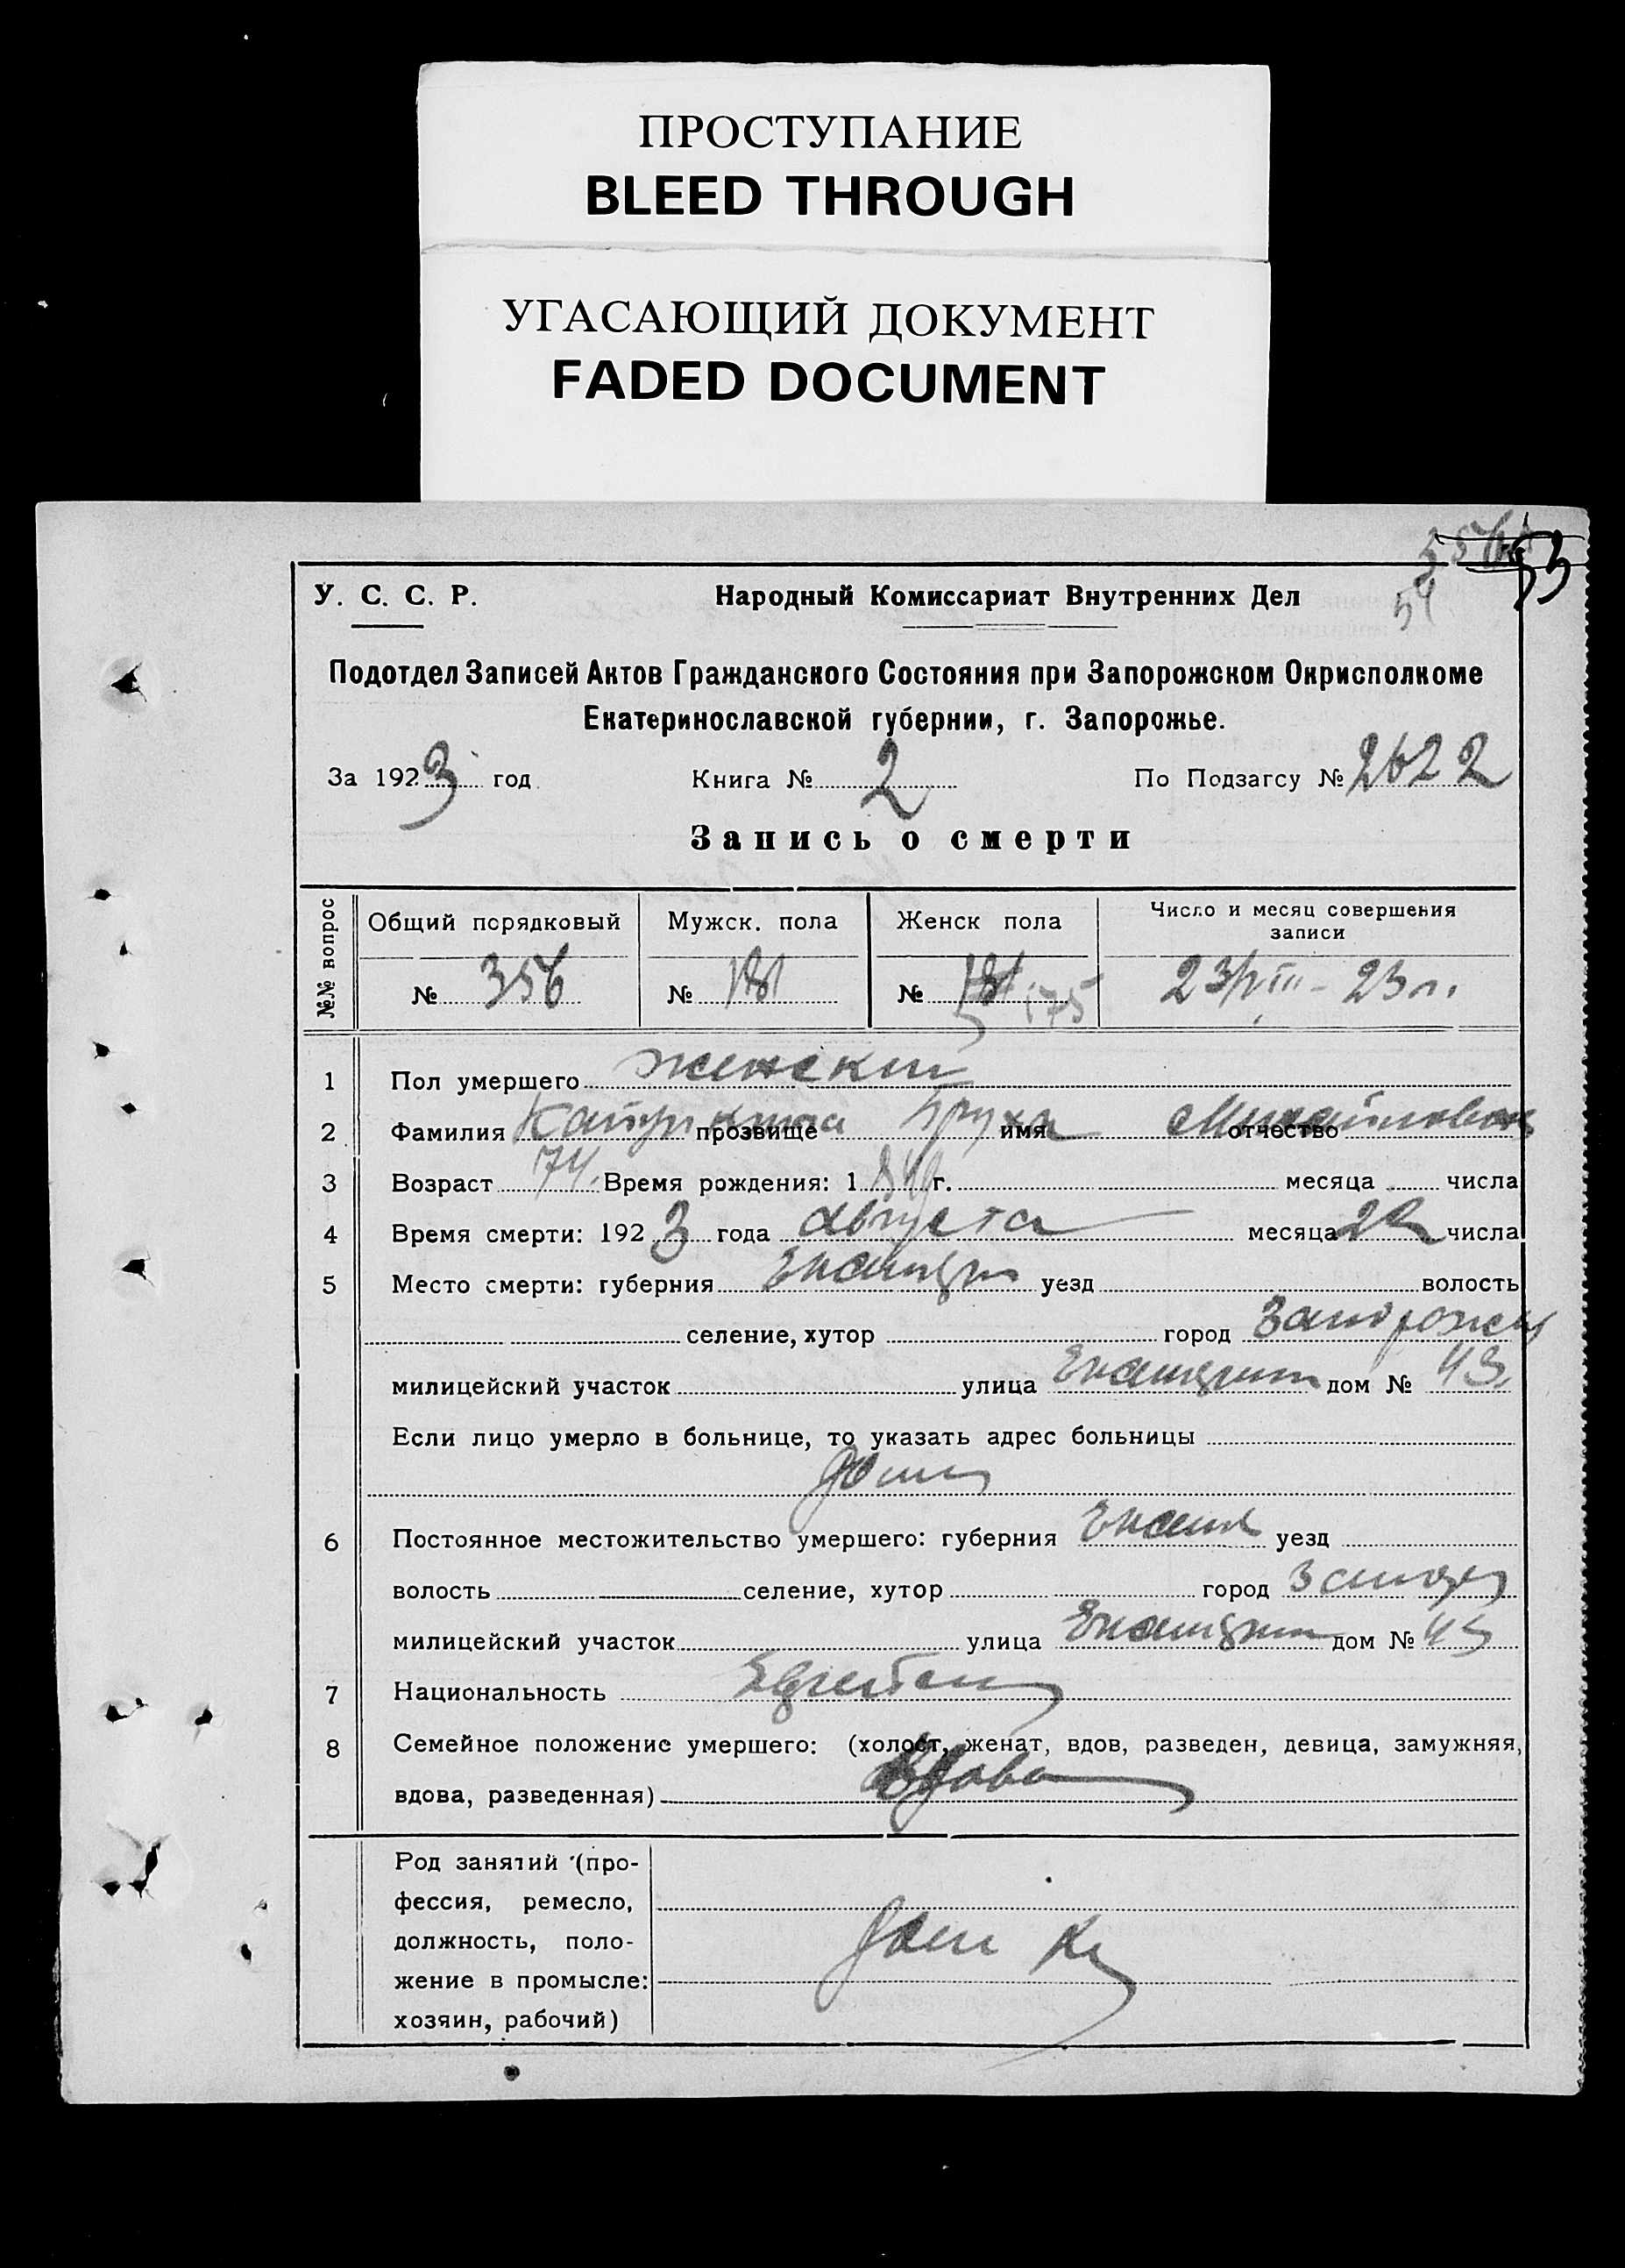 ПРОСТУПАНИЕ
BLEED THROUGH
УГАСАЮЩИЙ ДОКУМЕНТ
FADED DOCUMENT
53
54
У. С. С. Р. Народный Комиссариат Внутренних Дел
Подотдел Записей Актов Гражданского Состояния при Запорожском Окрисполкоме
Екатеринославской губернии, г. Запорожье.
За 1923 год Книга № 2 По Подзагсу № 2622
Запись о смерти
№№ вопрос Общий порядковый Мужск. пола Женск пола Число и месяц совершения записи
№ 356 № 181 № 181 175 23/VIII - 23 г.
1 Пол умершего женский
2 Фамилия прозвище имя отчество
3 Возраст 74. Время рождения: 1849 г. месяца числа
4 Время смерти: 1923 года августа месяца 22 числа
5 Место смерти: губерния уезд волость
селение, хутор город Запорожье
милицейский участок улица дом № 43.
Если лицо умерло в больнице, то указать адрес больницы
дома
6 Постоянное местожительство умершего: губерния уезд
волость селение, хутор город
милицейский участок улица дом № 43
7 Национальность
8 Семейное положение умершего: (холост, женат, вдов, разведен, девица, замужняя,
вдова, разведенная) Вдова
Род занятий (про-
фессия, ремесло,
должность, поло-
жение в промысле:
хозяин, рабочий)